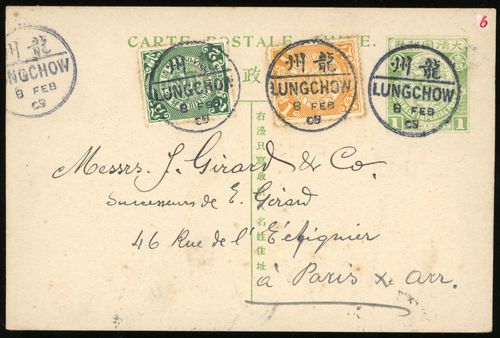 6
CARTE POSTALE CHINE.
大清國郵政
政
1
1
州龍
LUNGCHOW
8 FEB
09
州龍
LUNGCHOW
8 FEB
09
州龍
LUNGCHOW
8 FEB
09
州龍
LUNGCHOW
8 FEB
09
右邊只寫收信人名姓住址
Messrs. J. Girard & Co.
Successeurs de E. Girard
46 Rue de l'Échiquier
à Paris Xe Arr.